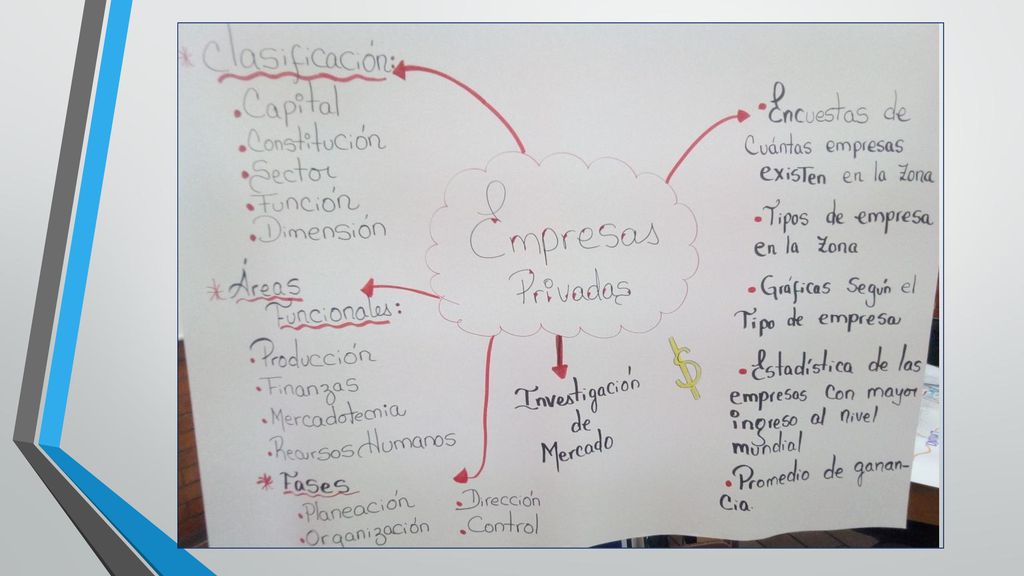 * Clasificación:
• Capital
• Constitución
• Sector
• Función
• Dimensión
* Áreas
Funcionales:
• Producción
• Finanzas
• Mercadotecnia
• Recursos Humanos
* Fases
• Planeación
• Organización
• Dirección
• Control
Empresas
Privadas
Investigación
de
Mercado
$
• Encuestas de
Cuántas empresas
existen en la zona
• Tipos de empresa
en la zona
• Gráficas Según el
Tipo de empresa
• Estadística de las
empresas con mayor
ingreso al nivel
mundial
• Promedio de ganan-
cia.